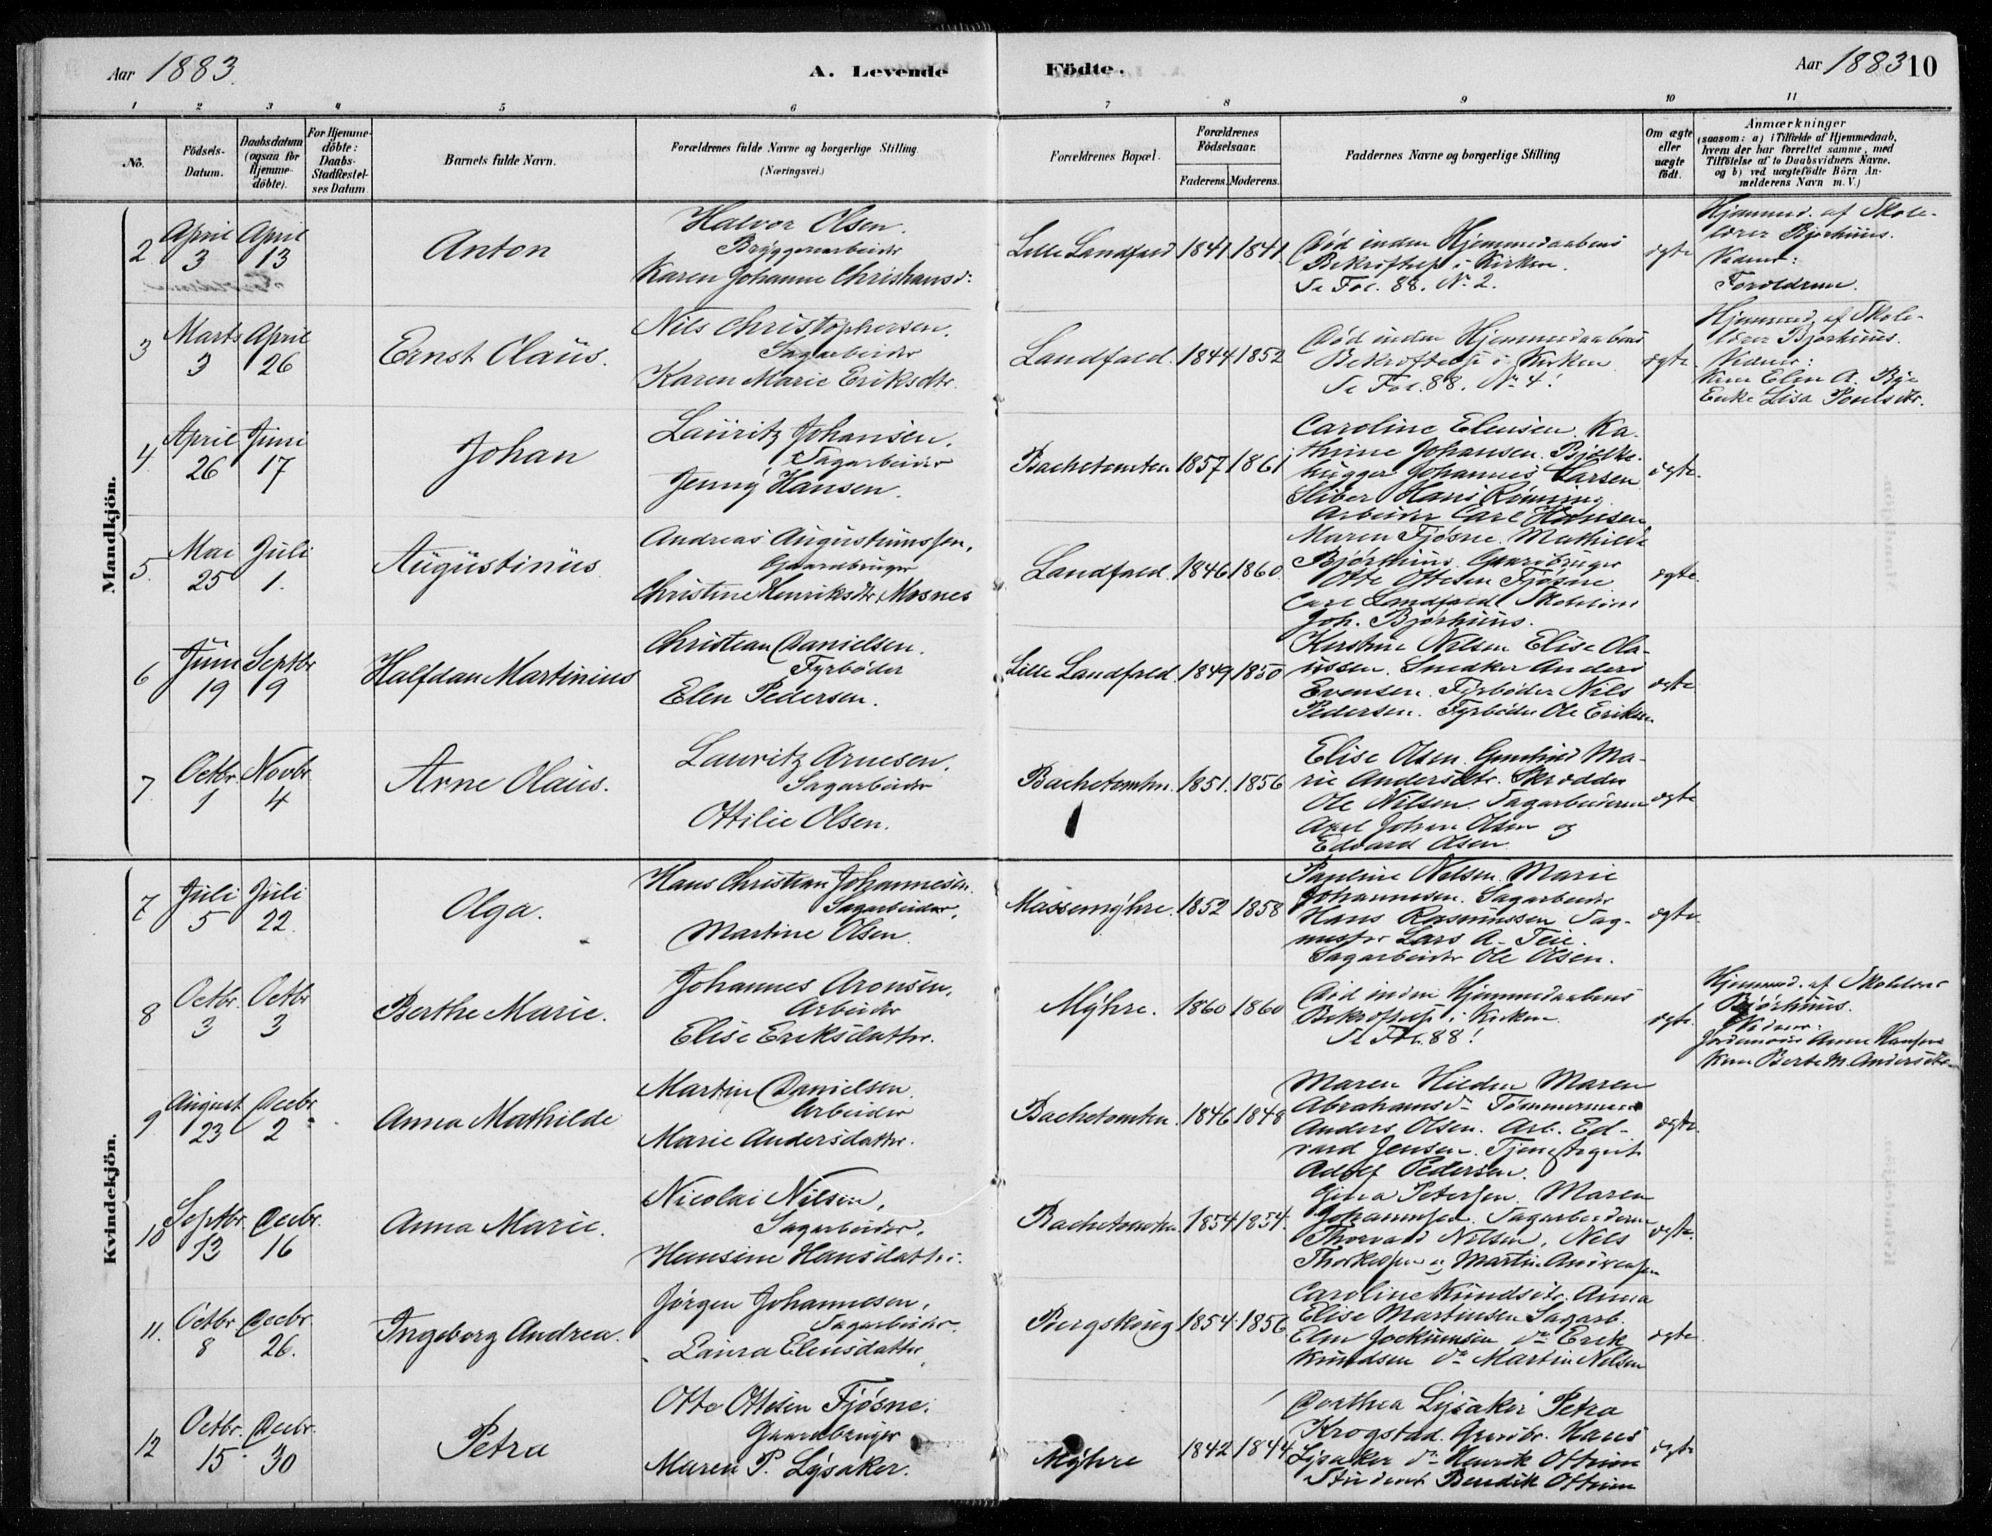 Aar 1883.
A. Levende
Födte.
Aar 1883 10
1 2 3 4 5 6 7 8 9 10 11
No.
Födsels-
Datum.
Daabsdatum
(ogsaa for
Hjemme-
döbte).
For Hjemme-
döbte:
Daabs-
Stadfæstel-
ses Datum
Barnets fulde Navn.
Forældrenes fulde Navne og borgerlige Stilling.
(Næringsvei.)
Forældrenes Bopæl.
Forældrenes
Födselsaar.
Faderens. Moderens.
Faddernes Navne og borgerlige Stilling
Om ægte
eller
uægte
födt.
Anmærkninger
(saasom: a) i Tilfælde af Hjemmedaab,
hvem der har forrettet samme, med
Tilföielse af to Daabsvidners Navne.
og b) ved uægtefödte Börn An-
melderens Navn m. V.)
Mandkjön.
2
April
3
April
13
Anton
Halvor Olsen.
Bryggerarbeider
Karen Johanne Christiansd:
Lille Landfald
1841
1841
Död inden Hjemmedaabens
Bekræftelse i Kirken.
Se Fol. 88. No 2.
ægte
Hjemmed. af Skole-
lærer Bjørhuus.
Vidner:
Forældrene.
3
Marts
3
April
26
Ernst Olaus.
Nils Christophersen.
Sagarbeider
Karen Marie Eriksdtr.
Landfald.
1844
1852
Död inden Hjemmedaabens
Bekræftelse i Kirken
Se Fol. 88. No 4!
ægte
Hjemmed. af Skole-
lærer Bjørhuus.
Vidner:
Kone Elen A. Bye
Enke Lisa Poulsdtr.
4
April
26
Juni
17
Johan
Lauritz Johansen.
Sagarbeider
Jenny Hansen.
Bachetomten
1857
1861
Caroline Elensen. Ka-
thrine Johansen. Bjelke-
hugger Johannes Larsen
Sliber Hans Rønning
Arbeider Carl Hansen
ægte.
5
Mai
25
Juli
1.
Augustinus
Andreas Augustinussen,
Gaardbruger
Christine Henriksdtr Mosnes
Landfald.
1846
1860
Maren Fjøsne. Mathilde
Bjørhuus. Gaardbruger
Otto Ottesen Fjøsne
Carl Landfald. Skolelærer
Joh. Bjørhuus.
ægte.
6
Juni
19
Septbr
9
Halfdan Martinius
Christian Danielsen.
Fyrbøder
Elen Pedersen.
Lille Landfald.
1849
1850
Kirstine Nilsen Elise Ola-
ussen. Snedker Anders
Evensen. Fyrbøder Nils
Pedersen. Fyrbøder Ole Eriksen
ægte
7
Octbr.
1
Novbr.
4
Arne Olaus.
Lauritz Arnesen.
Sagarbeider
Ottilie Olsen.
Bachetomten.
1851.
1856
Elise Olsen. Gunhild Ma-
rie Andersdtr. Skrædder
Ole Nilsen. Sagarbeiderne
Axel Johan Olsen og
Edvard Olsen
ægte
Kvindekjön.
7
Juli
5
Juli
22
Olga.
Hans Christian Johannesen
Sagarbeider.
Martine Olsen.
Massemyhre.
1852
1858
Pauline Nilsen. Marie
Johannesen. Sagarbeider
Hans Rasmussen Sag-
mester Lars A. Teie.
Sagarbeider Ole Olsen.
ægte.
8
Octbr.
3
Octbr
3
Berthe Marie.
Johannes Aronsen.
Arbeider
Elise Eriksdatter.
Myhre.
1860
1860
Död inden Hjemmedaabens
Bekræftelse i Kirken
Se Fol. 88!
ægte.
Hjemmed. af Skolelærer
Bjørhuus.
Vidner:
Jordemoder Anne Hansen
Kone Berte M. Andersdtr.
9
August
23
Decbr
2
Anna Mathilde
Martin Danielsen.
Arbeider
Marie Andersdatter.
Bachetomten.
1846
1848
Maren Hilden Maren
Abrahamsdtr Tømmermand
Anders Olsen. Arb. Ed-
vard Jensen. Tjenestegut
Adolf Pedersen.
ægte.
10
Septbr.
13
Decbr.
16
Anna Marie.
Nicolai Nilsen,
Sagarbeider.
Hansine Hansdatter.
Bachetomten
1854
1854.
Gina Petersen. Maren
Johannesen. Sagarbeiderne
Thorvald Nilsen, Nils
Thorkelsen og Martin Andreasen
ægte.
11.
Octbr
8
Decbr.
26.
Ingeborg Andrea.
Jørgen Johannesen,
Sagarbeider.
Laura Elensdatter
Bergskoug
1854
1856
Caroline Knudsdtr. Anna
Elise Martinsen Sagarb.
Elen Jockumsen do Erik
Knudsen do Martin Nilsen
ægte.
12
Octbr.
15
Decbr.
30
Petra
Otto Ottesen Fjøsne.
Gaardbruger
Maren P. Lysaker.
Myhre
1842
1844
Dorthea Lysaker Petra
Krogstad. Gaardbr. Hans
Lysaker do Henrik Ottesen
Student Bendik Ottesen
ægte